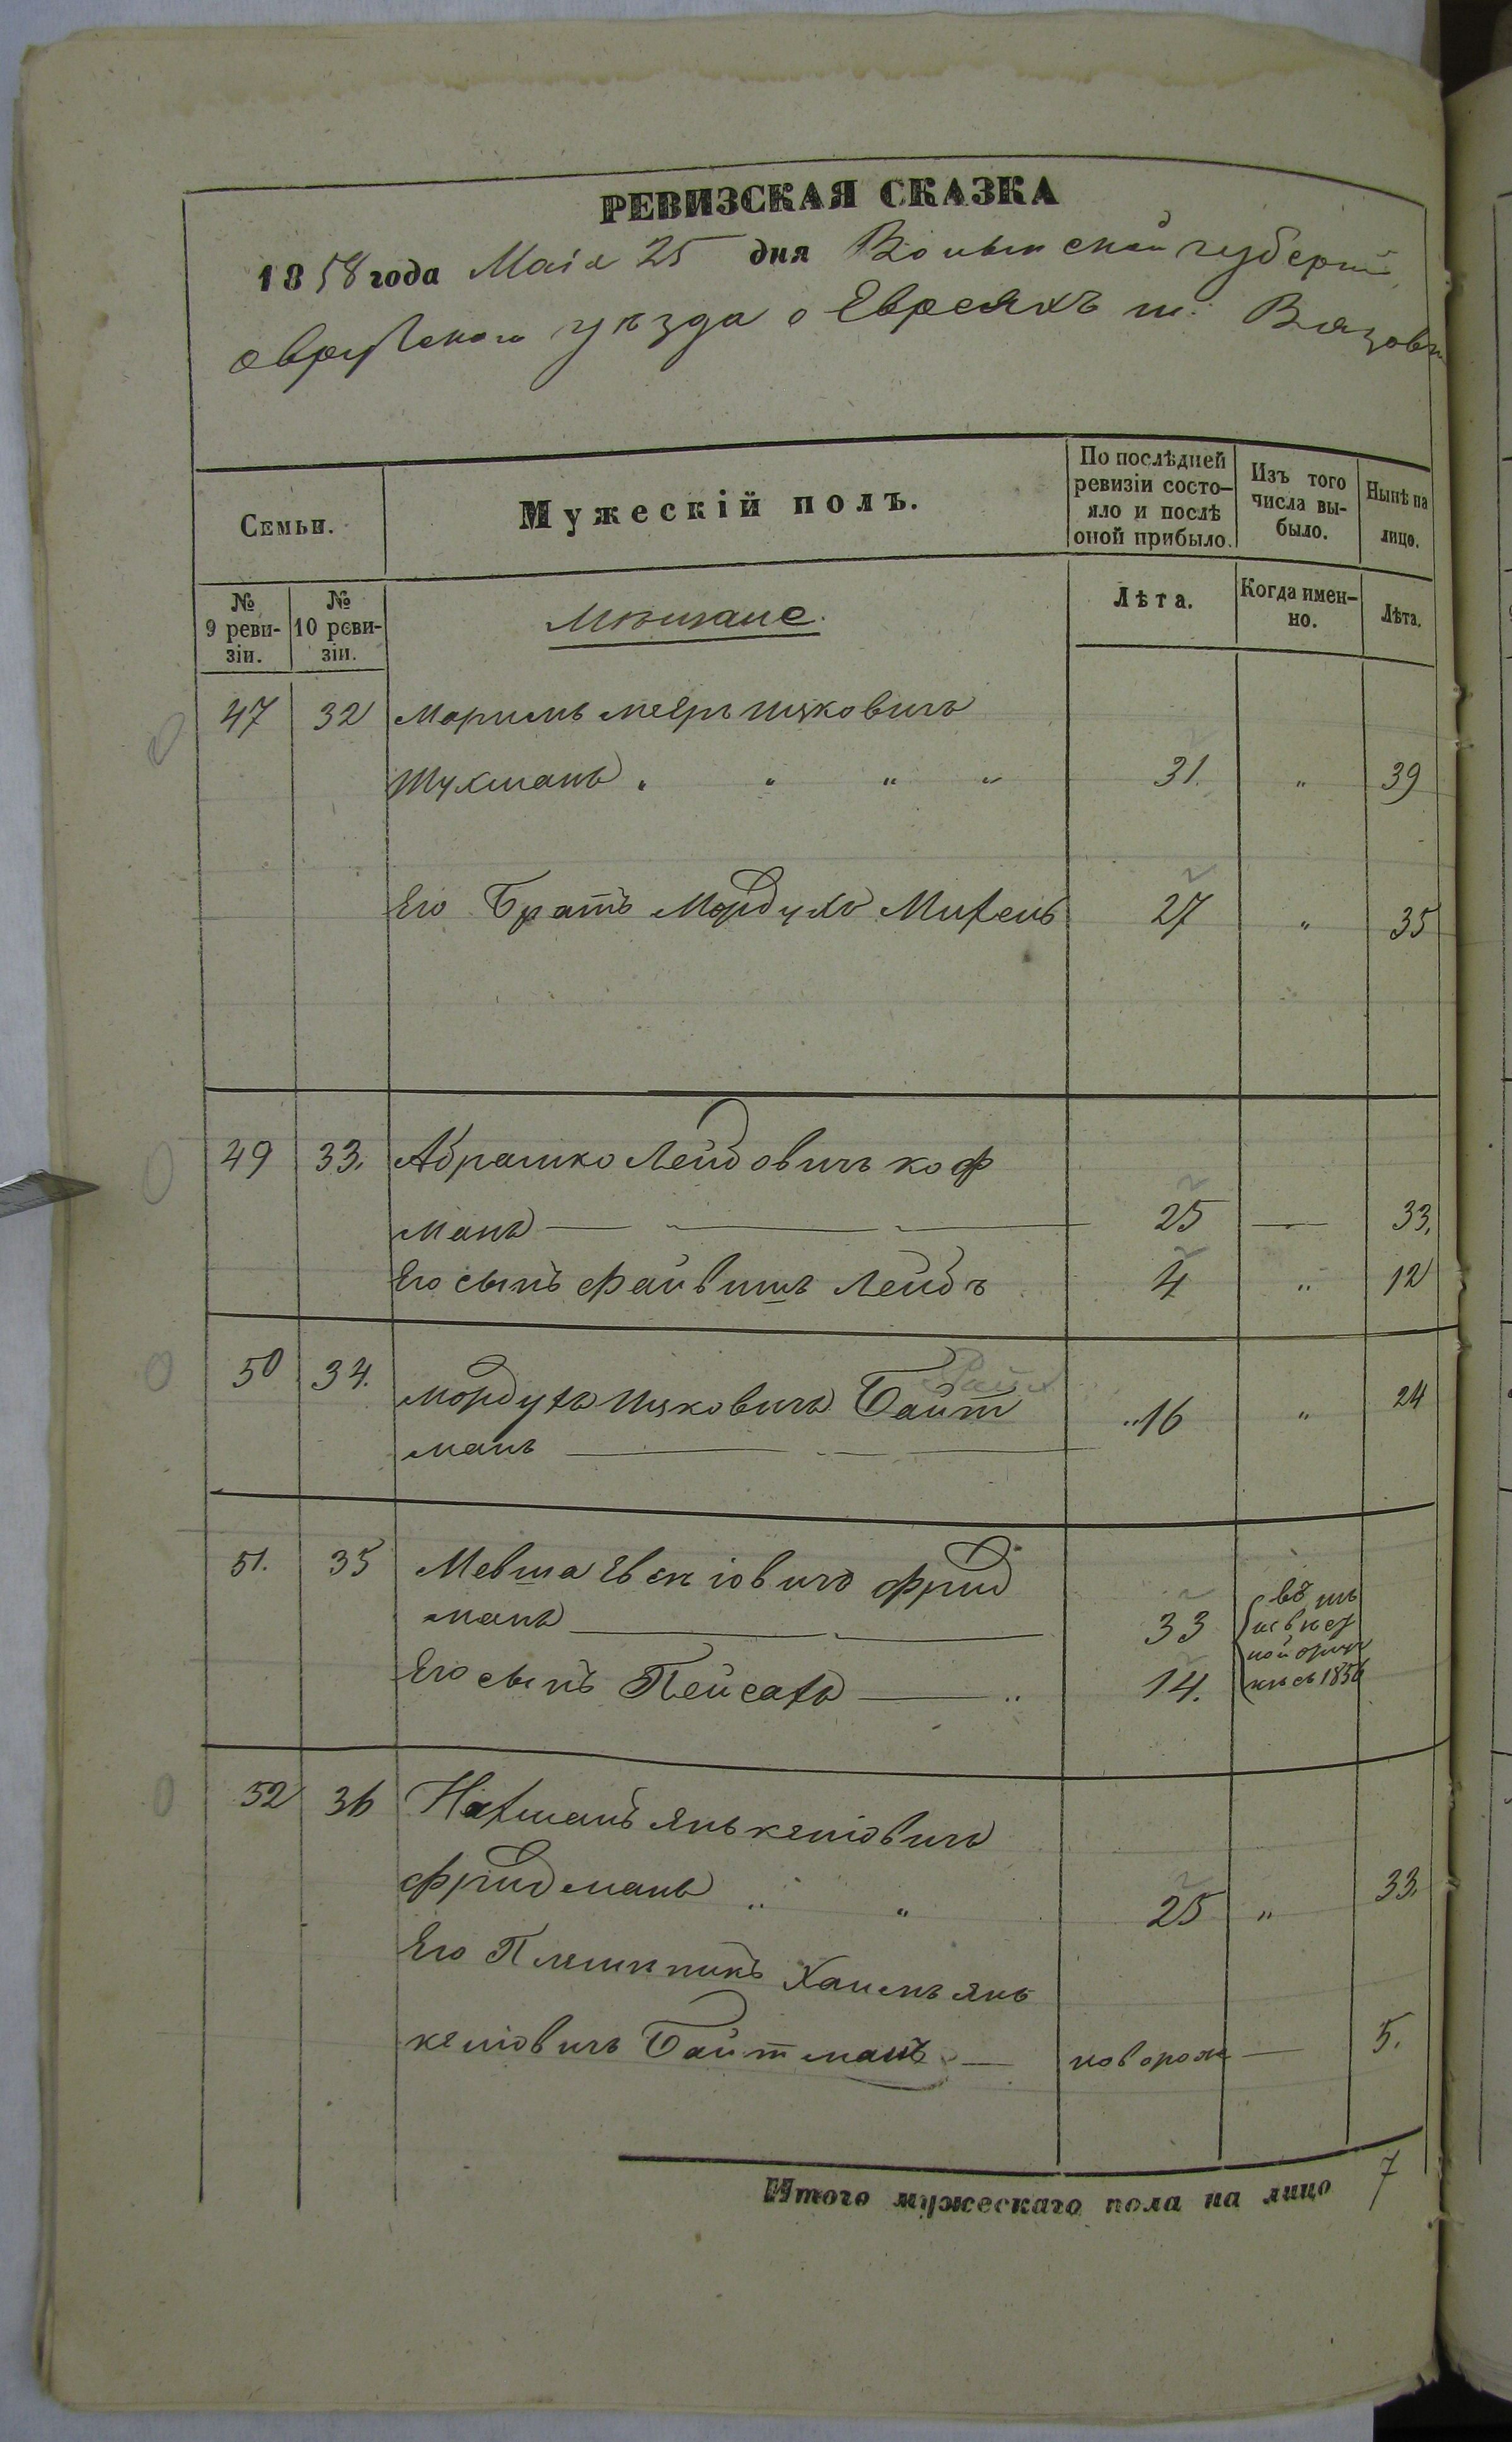 РЕВИЗСКАЯ СКАЗКА
1858 года Маія 25 дня Волынской губерніи
овручскаго уѣзда о Евреяхъ м.
Семьи.
Мужескій полъ.
По послѣдней ревизіи состо-
яло и послѣ
оной прибыло.
Изъ того
числа вы-
было.
Нынѣ на
лицо.
№
9 реви-
зіи.
№
10 реви-
зіи.
мѣщане.
Лѣта.
Когда имен-
но.
Лѣта.
47 32 Мееръ Ицковичъ
Тухманъ " " " " 31. " 39
Его Братъ Мордухъ Михель 27 " 35
49 33. Абрашко Лейбовичъ коф
манъ — 25 — 33.
Его сынъ Файвишъ Лейбъ 4 " 12
50 34. Мордухъ Ицковичъ Байт 16 " 24
манъ —
51. 35 Мевша фрид
манъ — 33
Его сынъ Пейсахъ — " 14. 1856
52 36 Нахманъ Янькелiовичъ
фридманъ " " 25 " 33.
Его Племникъ Хаимъ Янь
келiовичъ Байтманъ — новорож — 5.
Итого мужескаго пола на лицо 7